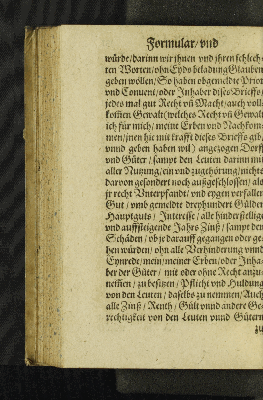 Formular/ vnd
würde/ darinn wir jhnen vnd jhren schlech-
ten Worten/ ohn Eydsbeladung Glauben
geben wöllen/ So haben obgemeldte Prior
vnd Conuent/ oder Inhaber dises Brieffs/
jedes mal gut Recht vñ Macht/ auch voll-
kom̃en Gewalt (welches Recht vñ Gewalt
ich für mich/ meine Erben vnd Nachkom-
men/ jnen hie mit krafft dieses Brieffs gib/
vnnd geben haben wil) angezogen Dorff
vnd Güter/ sampt den Leuten darinn mit
aller Nutzung/ ein vnd zugehörung/ nichts
daruon gesondert noch außgeschlossen/ als
jr recht Vnterpfandt/ vnd eygen verfallen
Gut/ vmb gemeldte dreyhundert Gülden
Hauptguts/ Interesse/ alle hinderstellige
vnd auffsteigende Jahrs Zinß/ sampt den
Schäden/ ob je darauff gegangen oder ge-
ben würden/ ohn alle Verhinderung vnnd
Eynrede/ mein/ meiner Erben/ oder Inha-
ber der Güter/ mit oder ohne Recht anzu-
nem̃en/ zu besitzen/ Pflicht vnd Huldung
von den Leuten/ daselbs zu nemmen/ Auch
alle Zinß/ Renth/ Gült vnnd andere Ge-
rechtigkeit von den Leuten vnnd Gütern
zu